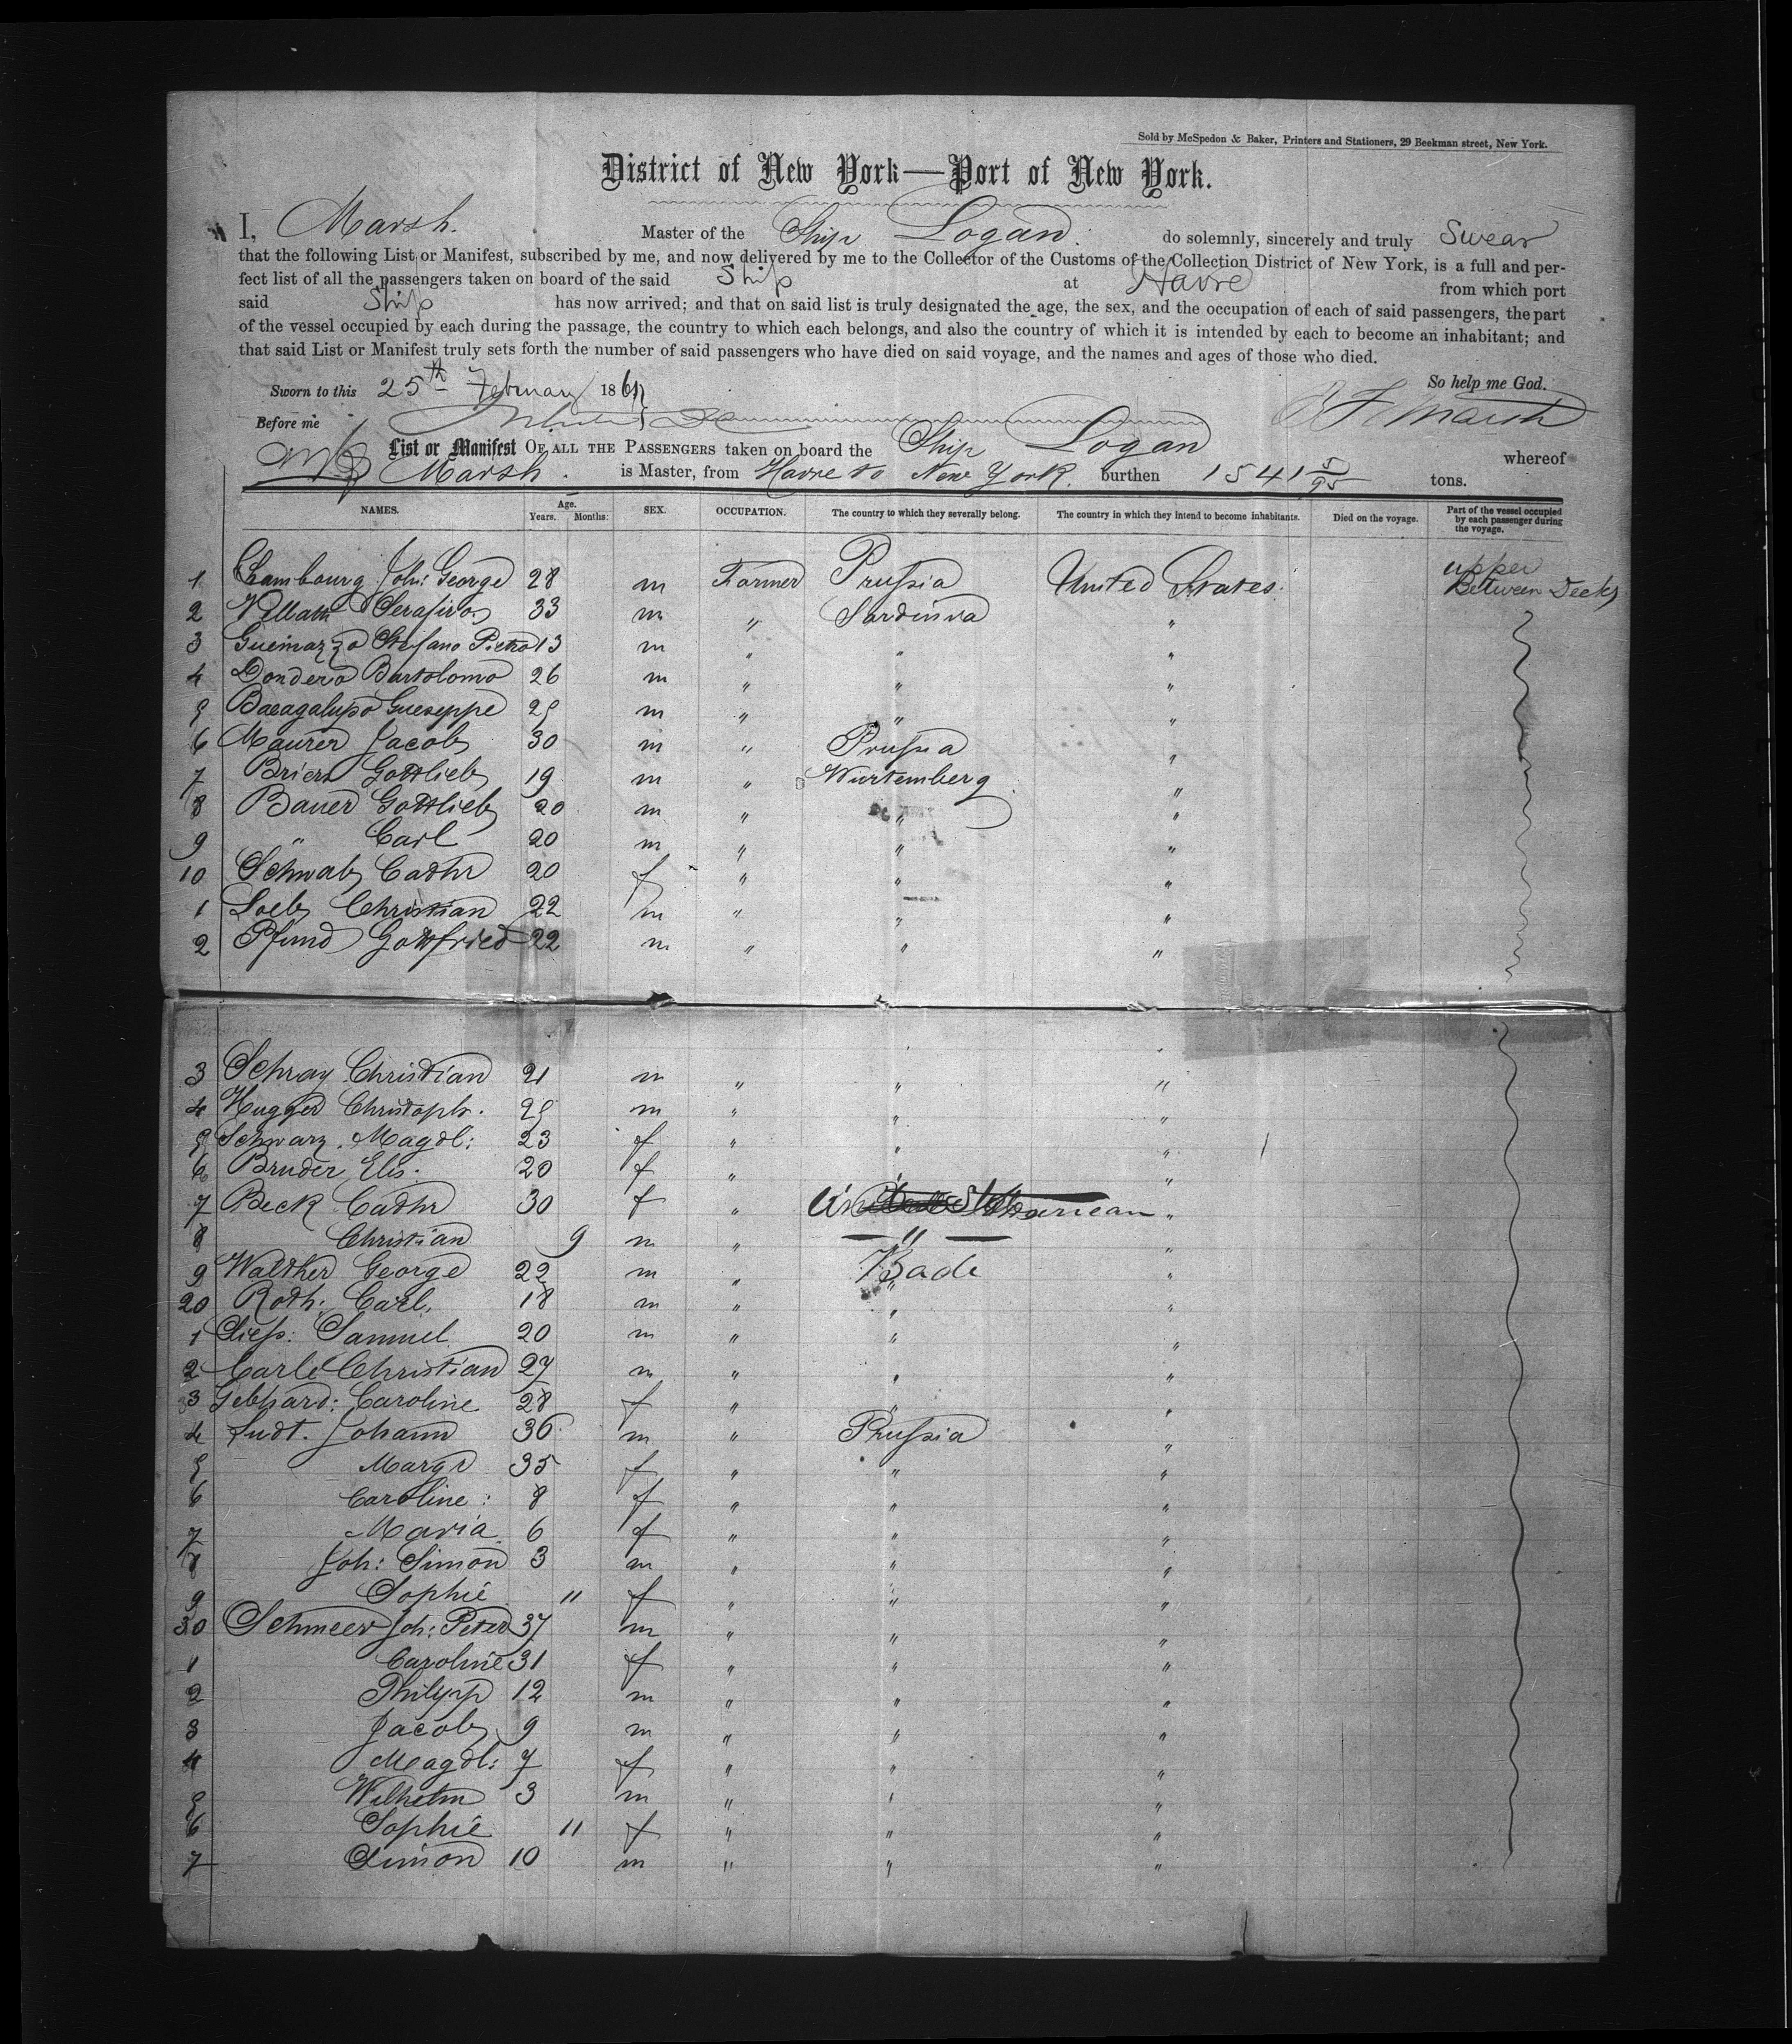 Sold by McSpedon & Baker, Printers and Stationers, 29 Beekman street, New York.
District of New York—Port of New York.
I, Marsh. Master of the Ship Logan. do solemnly, sincerely and truly Swear
that the following List or Manifest, subscribed by me, and now delivered by me to the Collector of the Customs of the Collection District of New York, is a full and per-
fect list of all the passengers taken on board of the said Ship at Havre from which port
said Ship has now arrived; and that on said list is truly designated the age, the sex, and the occupation of each of said passengers, the part
of the vessel occupied by each during the passage, the country to which each belongs, and also the country of which it is intended by each to become an inhabitant; and
that said List or Manifest truly sets forth the number of said passengers who have died on said voyage, and the names and ages of those who died.
Sworn to this 25th February 1861 So help me God.
Before me Marsh
List or Manifest OF ALL THE PASSENGERS taken on board the Ship Logan whereof
Marsh. is Master, from Havre to New York. burthen 1541 5/95 tons.
NAMES. Age. Years. Months. SEX. OCCUPATION. The country to which they severally belong. The country in which they intend to become inhabitants. Died on the voyage. Part of the vessel occupied by each passenger during the voyage.
1 Joh: George 28 m Farmer Prussia United States. upper Between Decks
2 33 m " Sardinia "
3 Stefano Pietro 13 m " " "
4 Dondero Bartolomo 26 m " " "
5 Bacagalupo Gueseppe 25 m " " "
6 Maurer Jacob 30 m " Prussia "
7 Gottlieb 19 m " Wurtemberg "
8 Bauer Gottlieb 20 m " " "
9 " Carl 20 m " " "
10 Schwab Cathr 20 f " " "
1 Loeb Christian 22 m " " "
2 Pfund Gottfried 22 m " " "
3 Schray Christian 21 m " " "
4 Hugger Christoph. 25 m " " "
5 Schwarz. Magdl: 23 f " " "
6 Bruder Elis. 20 f " " "
7 Beck Cathr 30 f " "
8 Christian 9 m " " "
9 Walther George 22 m " Bade "
20 Roth: Carl. 18 m " " "
1 Samuel 20 m " " "
2 Carle Christian 27 m " " "
3 Gebhard: Caroline 28 f " " "
4 Johann 36 m " Prussia "
5 Margr 35 f " " "
6 Caroline: 8 f " " "
7 Maria 6 f " " "
8 Joh: Simon 3 m " " "
9 Sophie 11 f " " "
30 Schmeer Joh: Peter 37 m " " "
1 Caroline 31 f " " "
2 Philipp 12 m " " "
3 Jacob 9 m " " "
4 Magdl: 7 f " " "
5 Wilhelm 3 m " " "
6 Sophie 11 f " " "
7 Simon 10 m " " "